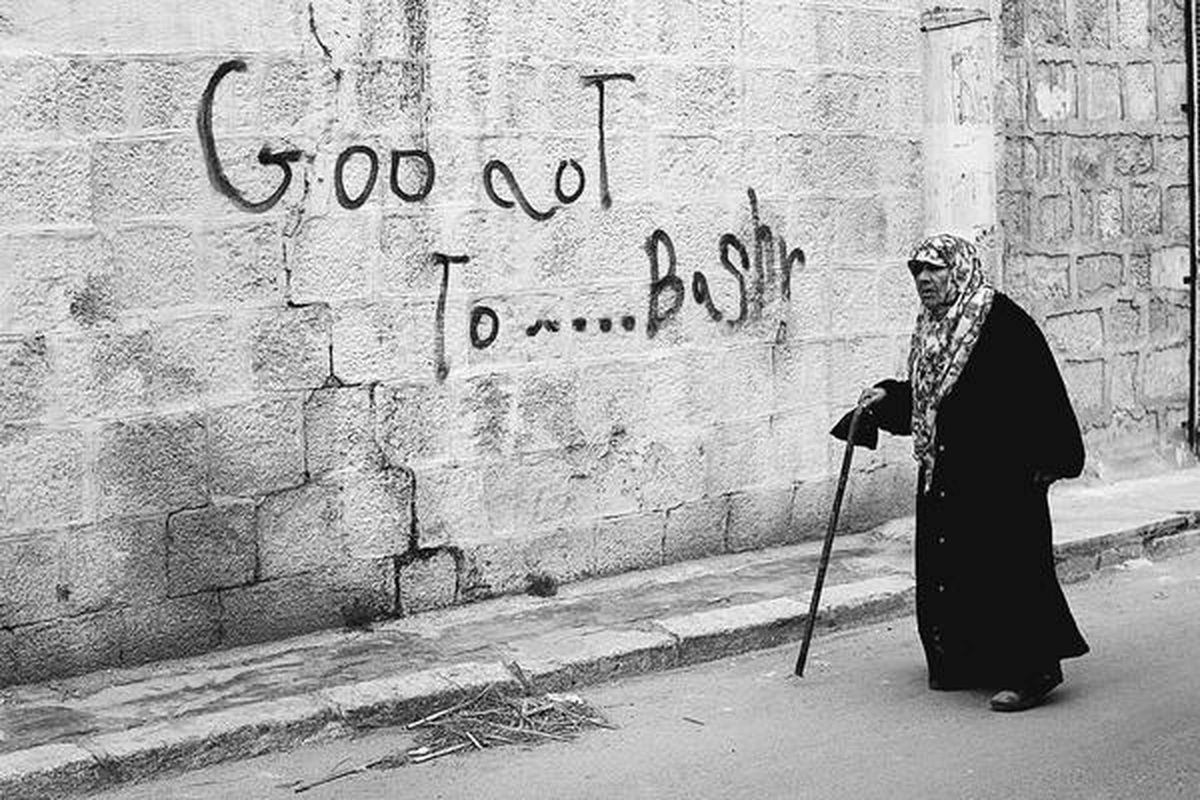 Goo noT
To ~.... Bashr